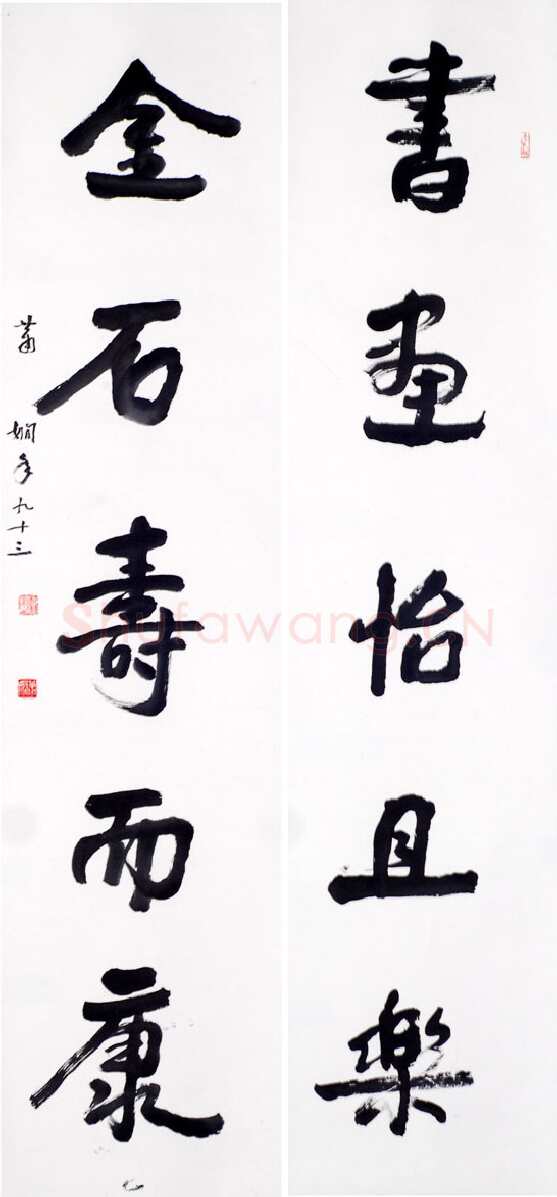 書畫怡且樂
金石壽而康
蕭嫻年九十三
Shufawang.CN